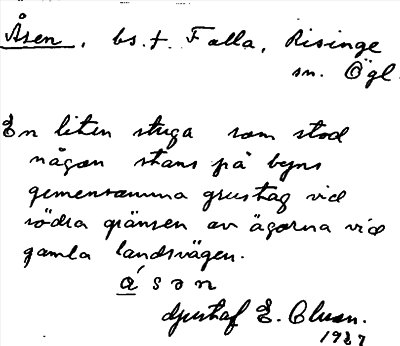 Åsen, bs. f. Falla, Risinge
sn. Ögl.
En liten stuga som stod
någon stans på byns
gemensamma grustag vid
södra gränsen av ägorna vid
gamla landsvägen.
a´sən
Gustaf E. Cluan.
1927